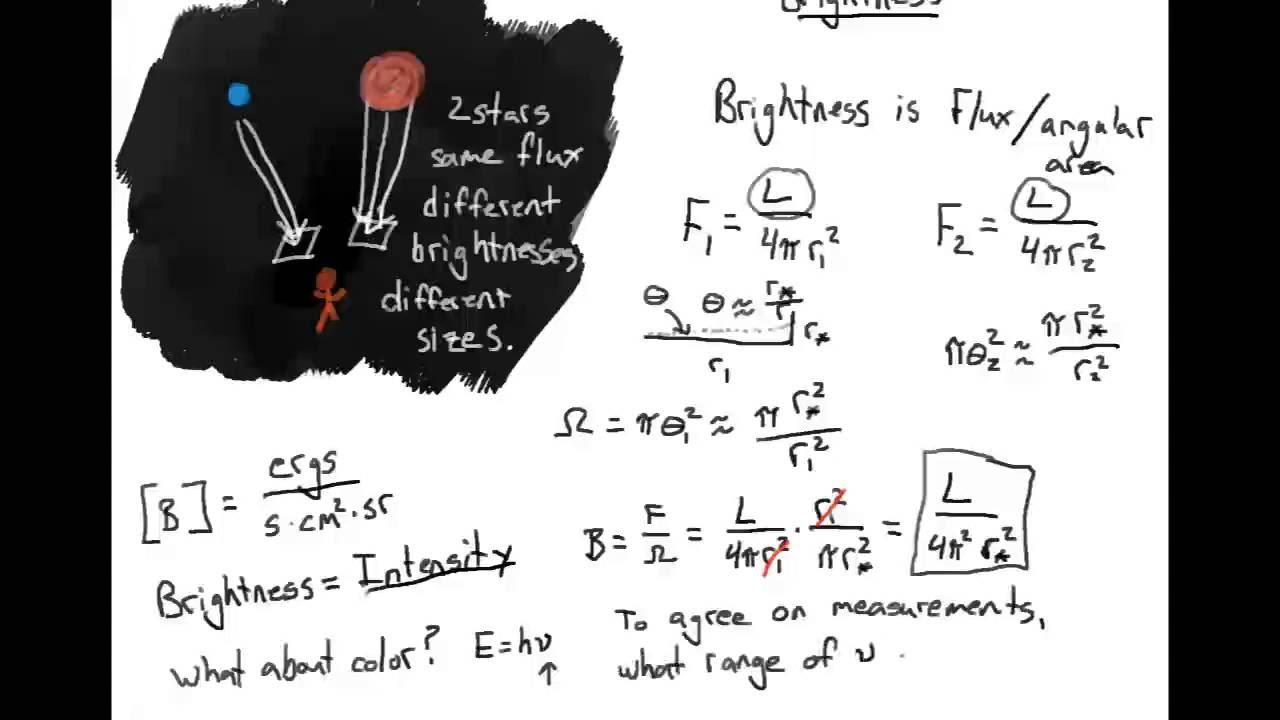 Brightness
2 stars
same flux
different
brightnesses
different
sizes.
Brightness is Flux/angular
area
F₁ = L / 4πr₁²
F₂ = L / 4πr₂²
θ θ ≈ r* / r
r*
r₁
πθ₂² ≈ πr*² / r₂²
Ω = πθ₁² ≈ πr*² / r₁²
[B] = ergs / s·cm²·sr
B = F/Ω = L / 4πr₁² · r₁² / πr*² = L / 4π² r*²
Brightness = Intensity
what about color? E = hν
↑
To agree on measurements,
what range of ν